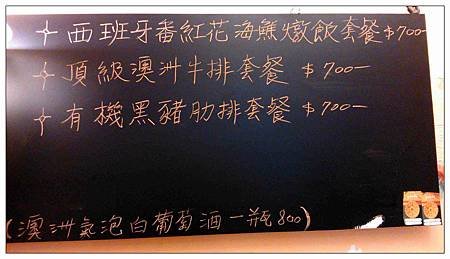 西班牙番紅花海鱻燉飯套餐 $700-
頂級澳洲牛排套餐 $700-
有機黑豬肋排套餐 $700-
(澳洲氣泡白葡萄酒一瓶800)